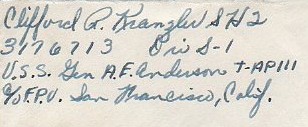 Clifford R. Kranzler SH2
3176713 Div S-1
U.S.S. Gen A.E. Anderson T-AP111
c/o F.P.O. San Francisco, Calif.